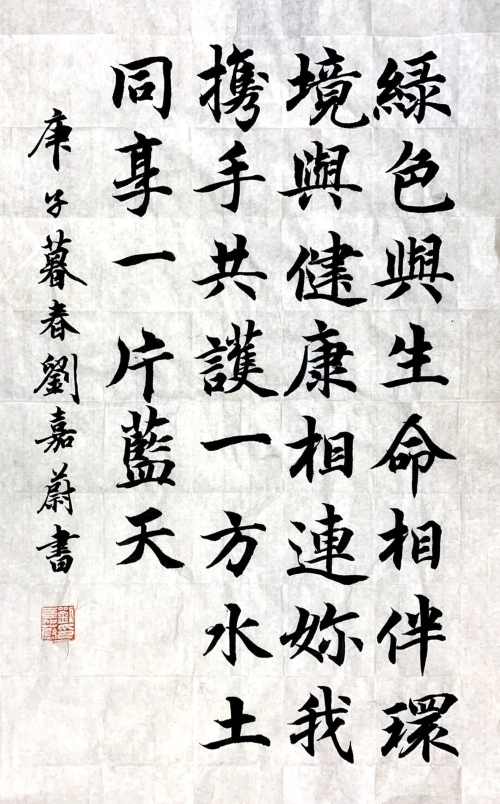 綠色與生命相伴環
境與健康相連妳我
攜手共護一方水土
同享一片藍天
庚子暮春劉嘉蔚書